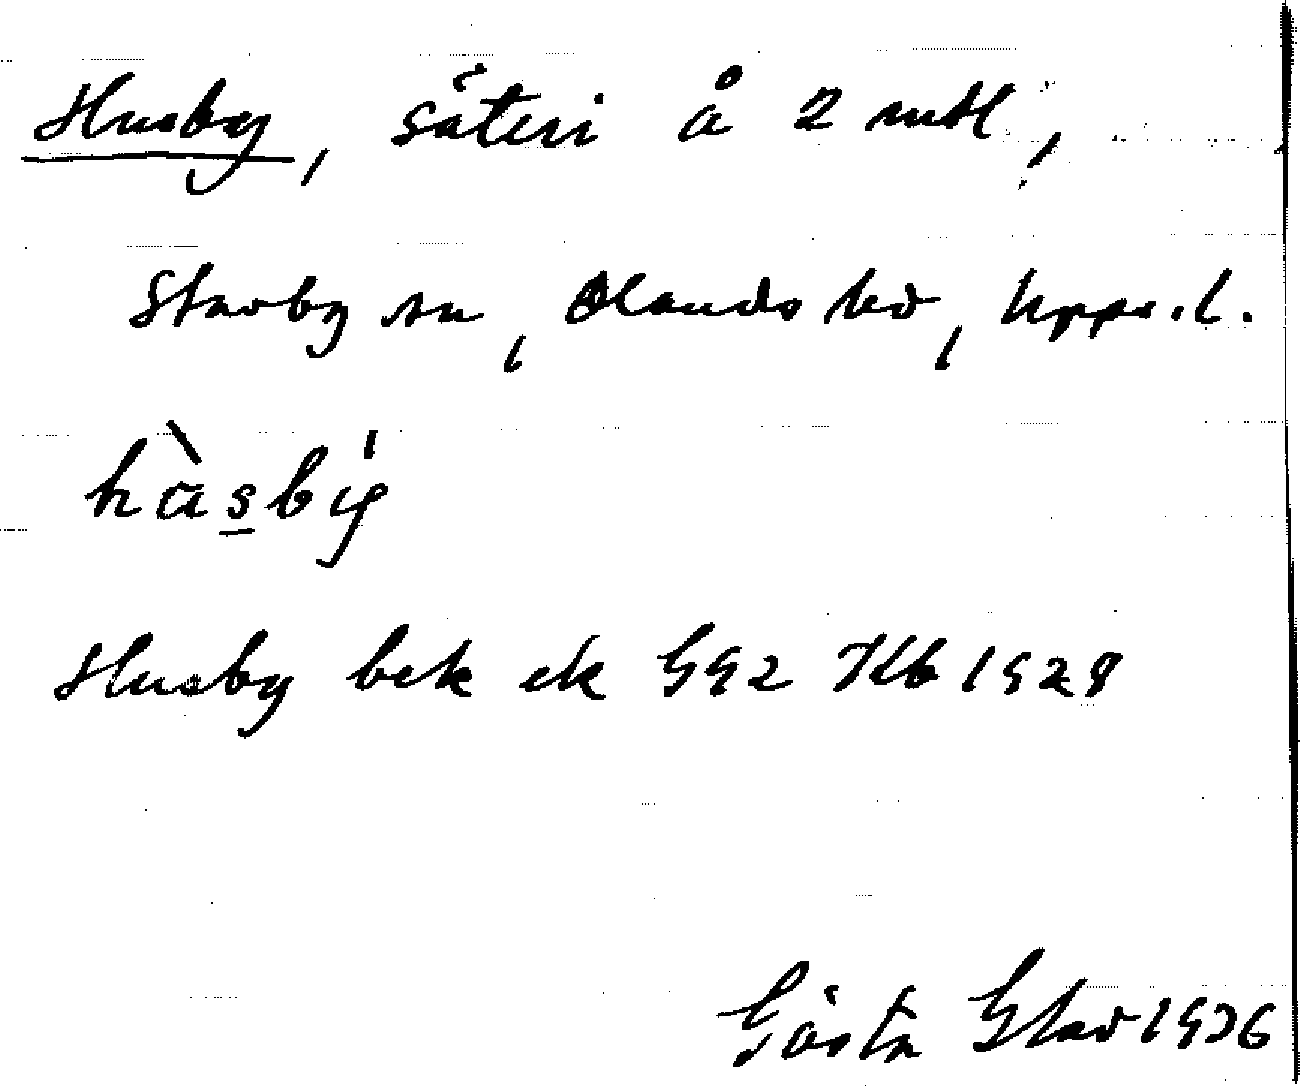 Husby, säteri å 2 mtl,
Stavby sn, Olands hd, Upps. l.
hὰsbẏ
Husby bek ek GG2 Kb 1928
Gösta Glad 1936